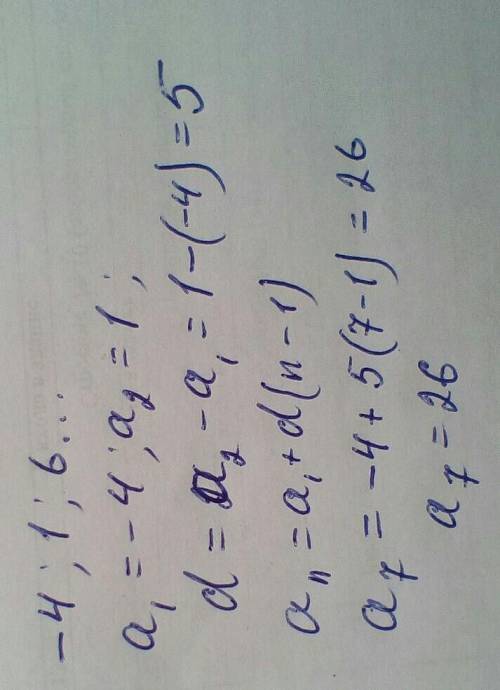 -4; 1; 6...
a₁ = -4; a₂ = 1;
d = a₂ - a₁ = 1 - (-4) = 5
aₙ = a₁ + d(n - 1)
a₇ = -4 + 5(7 - 1) = 26
a₇ = 26